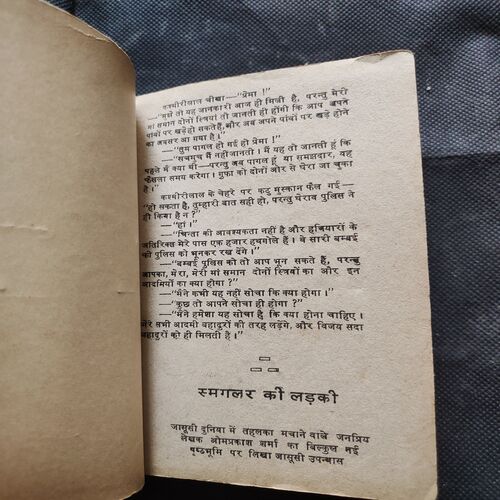 कश्मीरीलाल चीखा—“प्रेमा !”
—“मुझे तो यह जानकारी आज ही मिली है, परन्तु मेरी
मां समान दोनों स्त्रियां तो जानती ही होंगी कि आप अपने
पांवों पर खड़े हो सकते हैं, और अब अपने पांवों पर खड़े होने
का अवसर आ गया है।
—“तुम पागल हो गई हो प्रेमा !
—“सचमुच मैं नहीं जानती। मैं यह तो जानती हूं कि
पहले मैं क्या थी—परन्तु अब पागल हूं या समझदार, यह
फैसला समय करेगा। गुफा को दोनों ओर से घेरा जा चुका
है।
कश्मीरीलाल के चेहरे पर कटु मुस्कान फैल गई—
—“हो सकता है, तुम्हारी बात सही हो, परन्तु घेराव पुलिस ने
ही किया है न ?”
—“हां।”
—“चिन्ता की आवश्यकता नहीं है और हथियारों के
अतिरिक्त मेरे पास एक हजार हथगोले हैं। वे सारी बम्बई
की पुलिस को भूनकर रख देंगे।”
—“बम्बई पुलिस को तो आप भून सकते हैं, परन्तु
आपका, मेरा, मेरी मां समान दोनों स्त्रियों का और इन
आदमियों का क्या होगा ?”
—“मैंने कभी यह नहीं सोचा कि क्या होगा।”
—“कुछ तो आपने सोचा ही होगा ?”
—“मैंने हमेशा यह सोचा है कि क्या होना चाहिए।
मेरे सभी आदमी बहादुरों की तरह लड़ेंगे, और विजय सदा
बहादुरों को ही मिलती है।”
स्मगलर की लड़की
जासूसी दुनिया में तहलका मचाने वाले जनप्रिय
लेखक ओमप्रकाश शर्मा का बिल्कुल नई
पृष्ठभूमि पर लिखा जासूसी उपन्यास